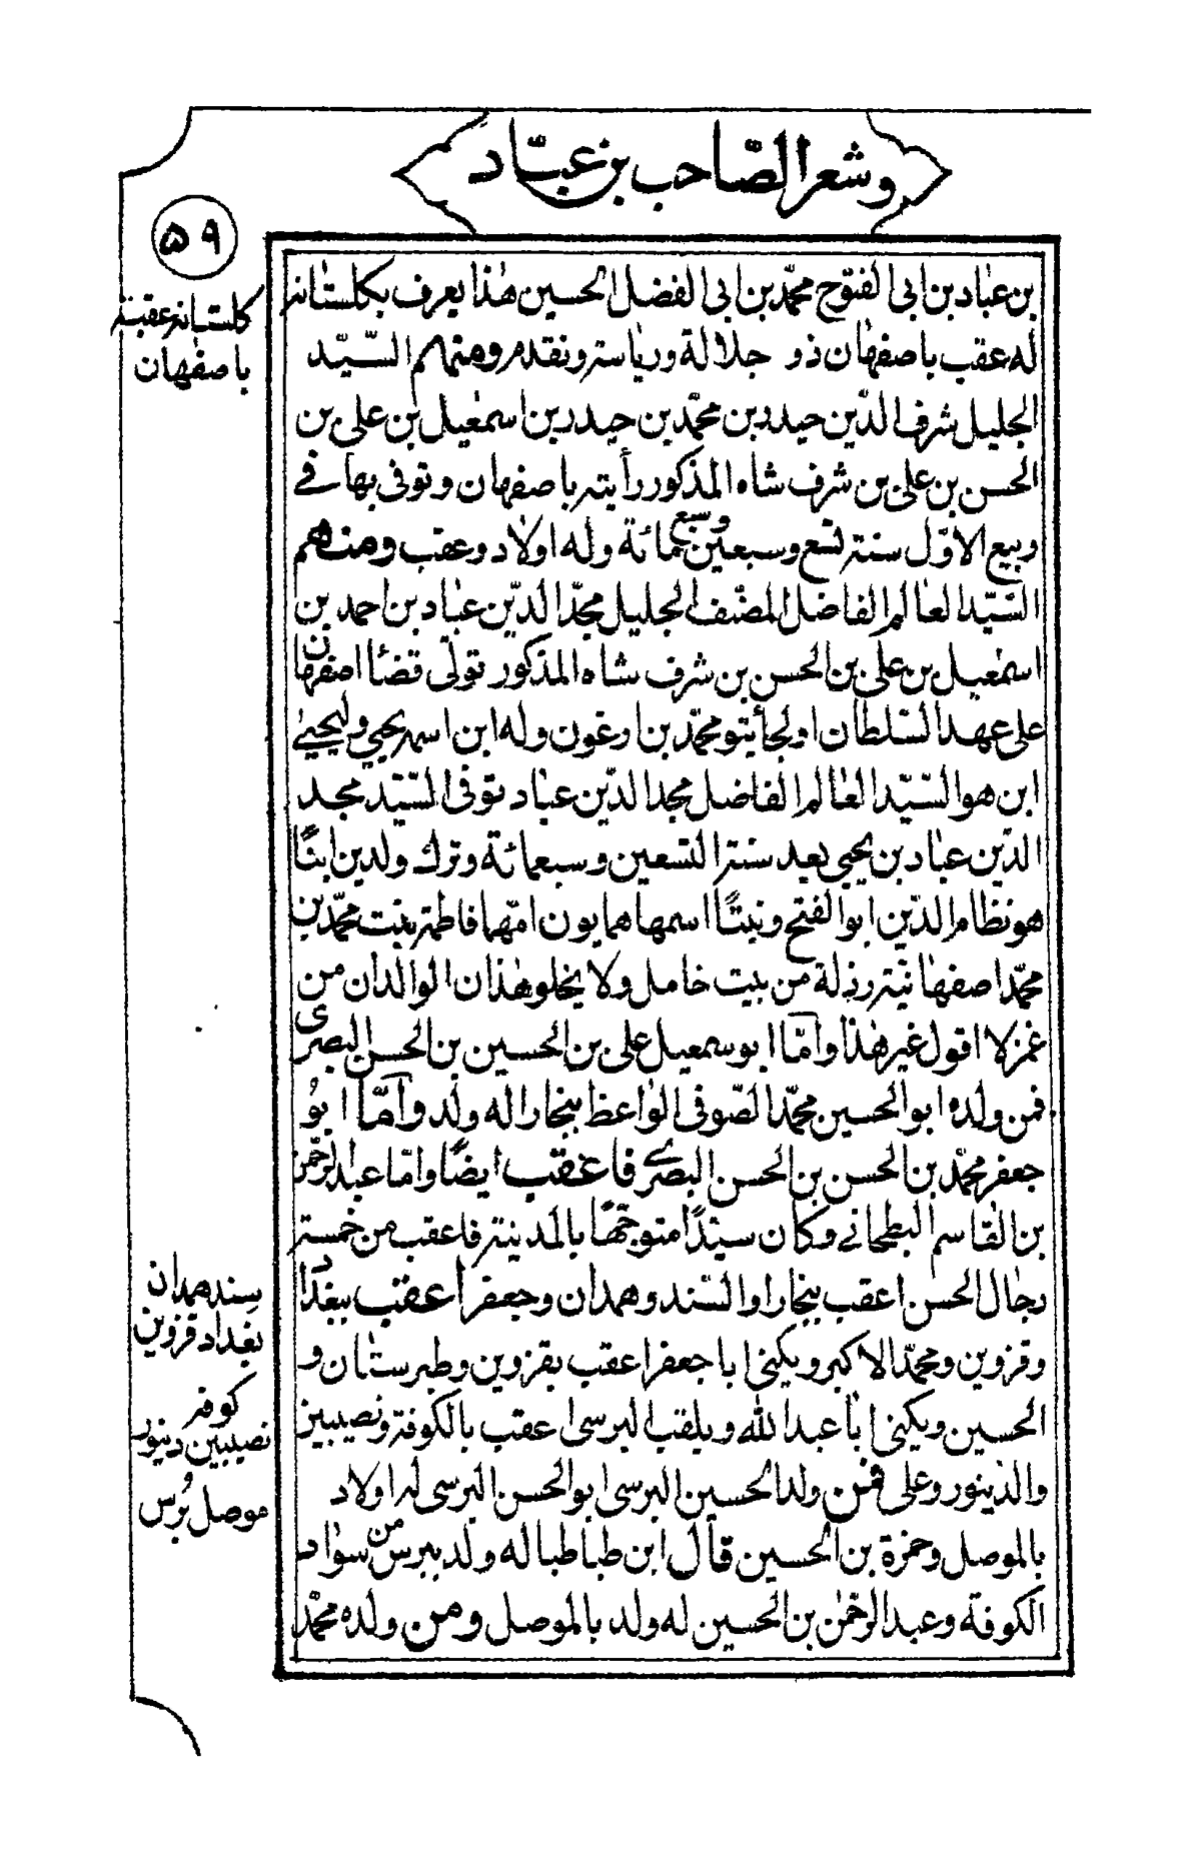 وشعر الصّاحب بن عبّاد
۵۹
بن عباد بن ابى الفتوح محمّد بن ابى الفضل الحسين هذا يعرف بكلستانه
له عقب باصفهان ذو جلالة ورياسة وتقدم ومنهم السّيّد
الجليل شرف الدّين حيدر بن محمّد بن حيدر بن اسمعيل بن على بن
الحسن بن على بن شرف شاه المذكور رأيته باصفهان وتوفى بها فے
ربيع الاوّل سنة تسع وسبعين وسبعمائة وله اولاد وعقب ومنهم
السّيّد العالم الفاضل المصنّف الجليل مجد الدّين عباد بن احمد بن
اسمعيل بن على بن الحسن بن شرف شاه المذكور تولّى قضا اصفهان
على عهد السّلطان اولجايتو محمّد بن ارغون وله ابن اسمه يحيى وليحيى
ابن هو السّيّد العالم الفاضل مجد الدّين عباد توفى السّيّد مجد
الدّين عباد بن يحيى بعد سنة التسعين وسبعمائة وترك ولدين ابنًا
هو نظام الدّين ابو الفتح وبنتًا اسمها همايون امّهما فاطمة بنت محمّد بن
محمّد اصفهانيّة رذلة من بيت خامل ولا يخلو هذان الوالدان من
غمز لا اقول غير هذا وامّا ابو سمعيل على بن الحسين بن الحسن البصرى
فمن ولده ابو الحسين محمّد الصّوفى الواعظ ببخارا له ولد وامّا ابو
جعفر محمّد بن الحسن بن الحسن البصرے فاعقب ايضًا وامّا عبد الرحمن
بن القاسم البطحانے وكان سيّدًا متوجّهًا بالمدينة فاعقب من خمسة
رجال الحسن اعقب ببخارا والسّند وهمدان وجعفر اعقب ببغداد
وقزوين ومحمّد الاكبر ويكنى ابا جعفر اعقب بقزوين وطبرستان و
الحسين ويكنى ابا عبد الله ويلقب البرسى اعقب بالكوفة ونصيبين
والدينور وعلى فمن ولد الحسين البرسى ابو الحسن البرسى له اولاد
بالموصل وحمزة بن الحسين قال ابن طباطبا له ولد ببرس من سواد
الكوفة وعبد الرحمن بن الحسين له ولد بالموصل ومن ولده محمّد
كلستانه عقبه
باصفهان
سند همدان
بغداد قزوين
كوفه
نصيبين دينور
موصل بُرس